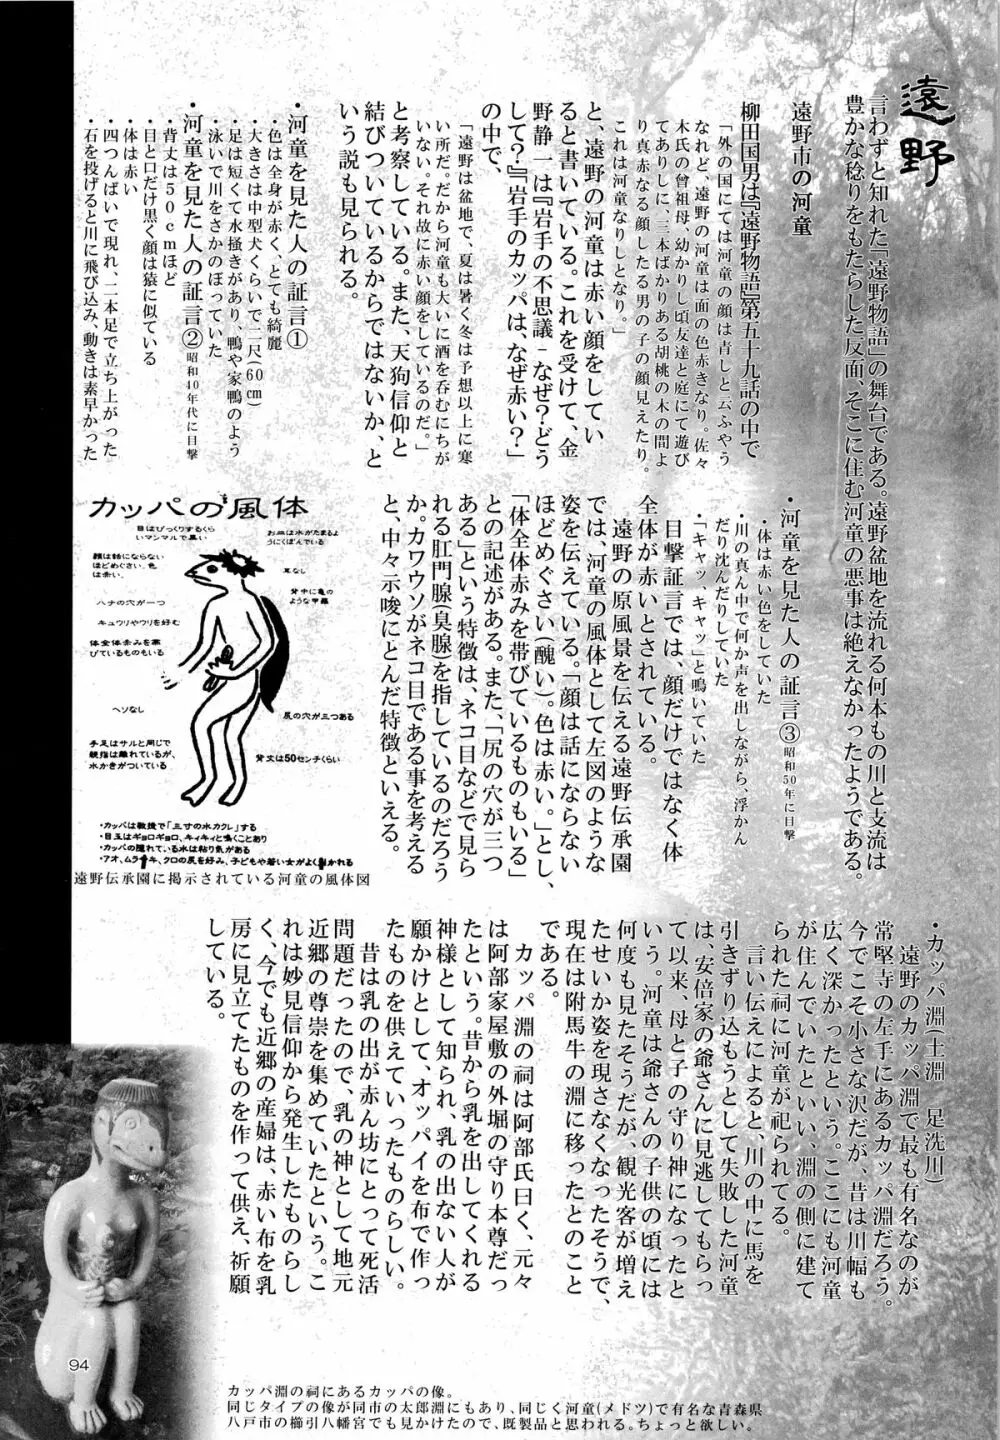 遠野
言わずと知れた「遠野物語」の舞台である。遠野盆地を流れる何本もの川と支流は
豊かな稔りをもたらした反面、そこに住む河童の悪事は絶えなかったようである。
遠野市の河童
柳田国男は『遠野物語』第五十九話の中で
「外の国にては河童の顔は青しと云ふやう
なれど、遠野の河童は面の色赤きなり。佐々
木氏の曾祖母、幼かりし頃友達と庭にて遊び
てありしに、三本ばかりある胡桃の木の間よ
り真赤なる顔したる男の子の顔見えたり。
これは河童なりしとなり。」
と、遠野の河童は赤い顔をしてい
ると書いている。これを受けて、金
野静一は『岩手の不思議-なぜ?どう
して?』『岩手のカッパは、なぜ赤い?」
の中で、
「遠野は盆地で、夏は暑く冬は予想以上に寒
い所だ。だから河童も大いに酒を呑むにちが
いない。それ故に赤い顔をしているのだ。」
と考察している。また、天狗信仰と
結びついているからではないか、と
いう説も見られる。
・河童を見た人の証言①
・色は全身が赤く、とても綺麗
・大きさは中型犬くらいで二尺(60cm)
・足は短くて水掻きがあり、鴨や家鴨のよう
・泳いで川をさかのぼっていた
・河童を見た人の証言② 昭和40年代に目撃
・背丈は50cmほど
・目と口だけ黒く顔は猿に似ている
・体は赤い
・四つんばいで現れ、二本足で立ち上がった
・石を投げると川に飛び込み、動きは素早かった
・河童を見た人の証言③ 昭和50年に目撃
・体は赤い色をしていた
・川の真ん中で何か声を出しながら、浮かん
だり沈んだりしていた
・「キャッ、キャッ」と鳴いていた
目撃証言では、顔だけではなく体
全体が赤いとされている。
遠野の原風景を伝える遠野伝承園
では、河童の風体として左図のような
姿を伝えている。「顔は話にならない
ほどめぐさい(醜い)。色は赤い。」とし、
「体全体赤みを帯びているものもいる」
との記述がある。また、「尻の穴が三つ
ある」という特徴は、ネコ目などで見ら
れる肛門腺(臭腺)を指しているのだろう
か。カワウソがネコ目である事を考える
と、中々示唆にとんだ特徴といえる。
カッパの風体
目はびっくりするくら
いマンマルで黒い
お皿は水がたまるよ
うにくぼんでいる
顔は話にならない
ほどめぐさい、色
は赤い。
耳なし
背中に亀の
ような甲羅
ハナの穴が一つ
キュウリやウリを好む
体全体赤みを帯
びているものもいる
ヘソなし
尻の穴が三つある
手足はサルと同じで
親指は離れているが、
水かきがついている
背丈は50センチくらい
・カッパは教授で「三寸の水カクレ」する
・目玉はギョロギョロ、キィキィと鳴くことあり
・カッパの隠れている水は粘り気がある
・アオ、ムラサキ、クロの尻を好み、子どもや若い女がよくひかれる
遠野伝承園に掲示されている河童の風体図
・カッパ淵(土淵 足洗川)
遠野のカッパ淵で最も有名なのが
常堅寺の左手にあるカッパ淵だろう。
今でこそ小さな沢だが、昔は川幅も
広く深かったという。ここにも河童
が住んでいたといい、淵の側に建て
られた祠に河童が祀られてる。
言い伝えによると、川の中に馬を
引きずり込もうとして失敗した河童
は、安倍家の爺さんに見逃してもらっ
て以来、母と子の守り神になったと
いう。河童は爺さんの子供の頃には
何度も見たそうだが、観光客が増え
たせいか姿を現さなくなったそうで、
現在は附馬牛の淵に移ったとのこと
である。
カッパ淵の祠は阿部氏曰く、元々
は阿部家屋敷の外堀の守り本尊だっ
たという。昔から乳を出してくれる
神様として知られ、乳の出ない人が
願かけとして、オッパイを布で作っ
たものを供えていったものらしい。
昔は乳の出が赤ん坊にとって死活
問題だったので、乳の神として地元
近郷の尊崇を集めていたという。こ
れは妙見信仰から発生したものらし
く、今でも近郷の産婦は、赤い布を乳
房に見立てたものを作って供え、祈願
している。
カッパ淵の祠にあるカッパの像。
同じタイプの像が同市の太郎淵にもあり、同じく河童(メドツ)で有名な青森県
八戸市の櫛引八幡宮でも見かけたので、既製品と思われる。ちょっと欲しい。
94